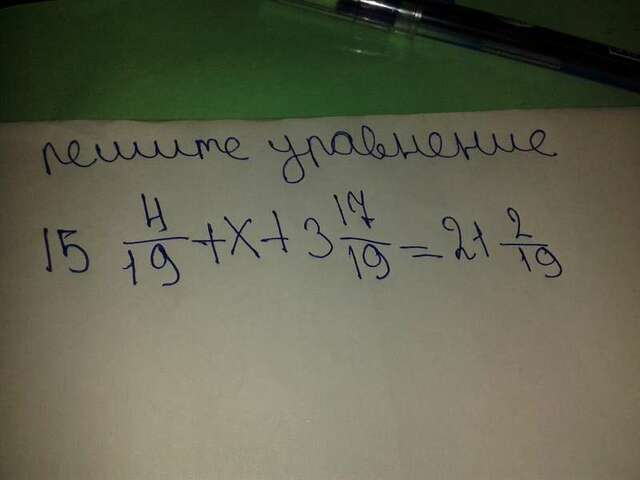 решите уравнение
15 4/19 + x + 3 17/19 = 21 2/19